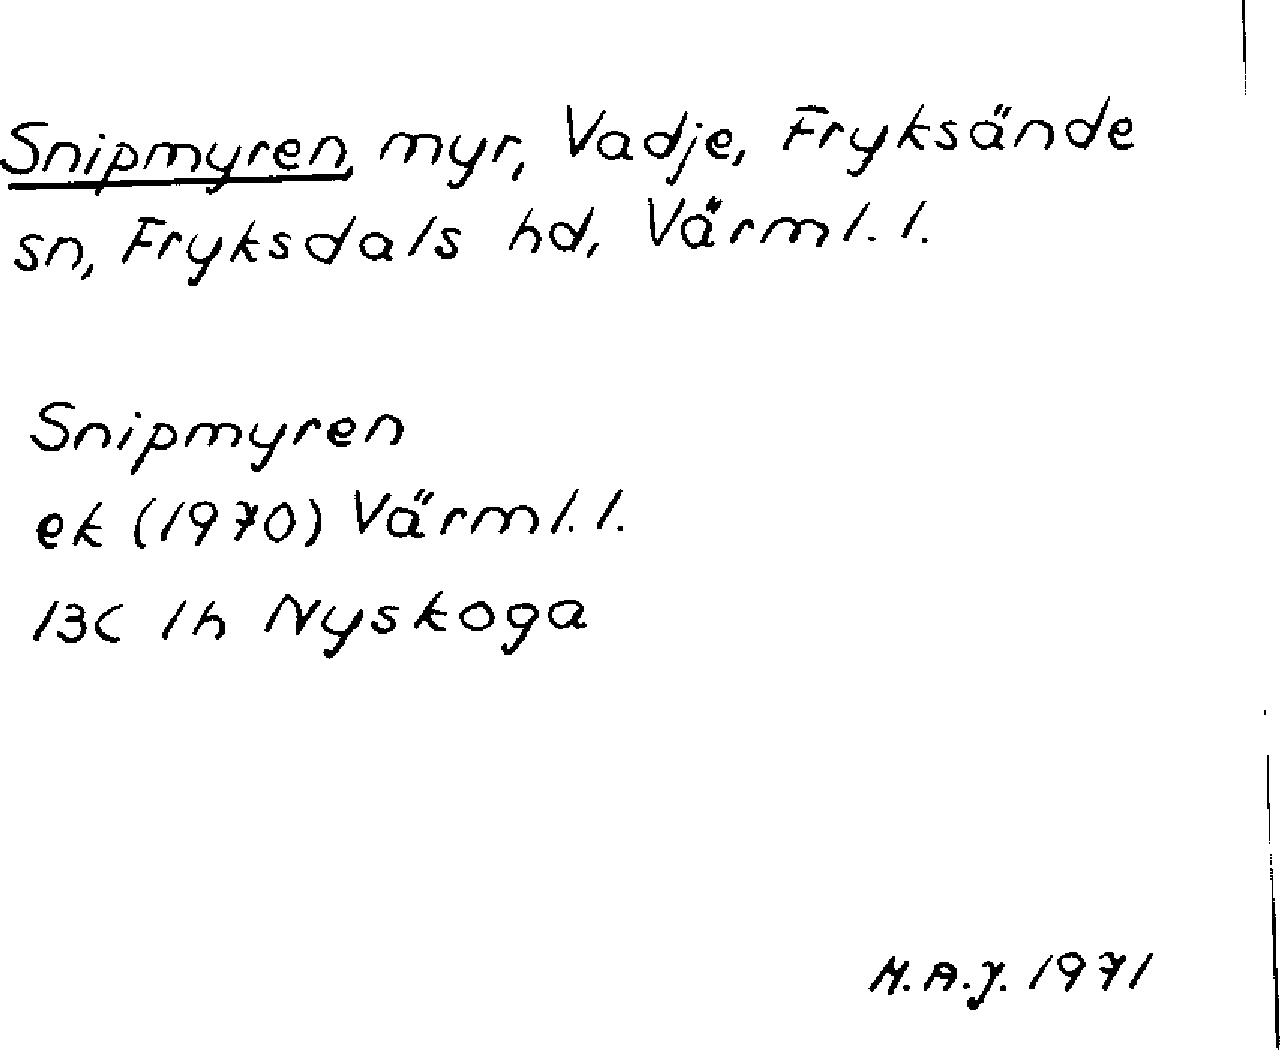 Snipmyren, myr, Vadje, Fryksände
sn, Fryksdals hd, Värml. l.
Snipmyren
ek (1970) Värml. l.
13C 1h Nyskoga
M.A.J. 1971